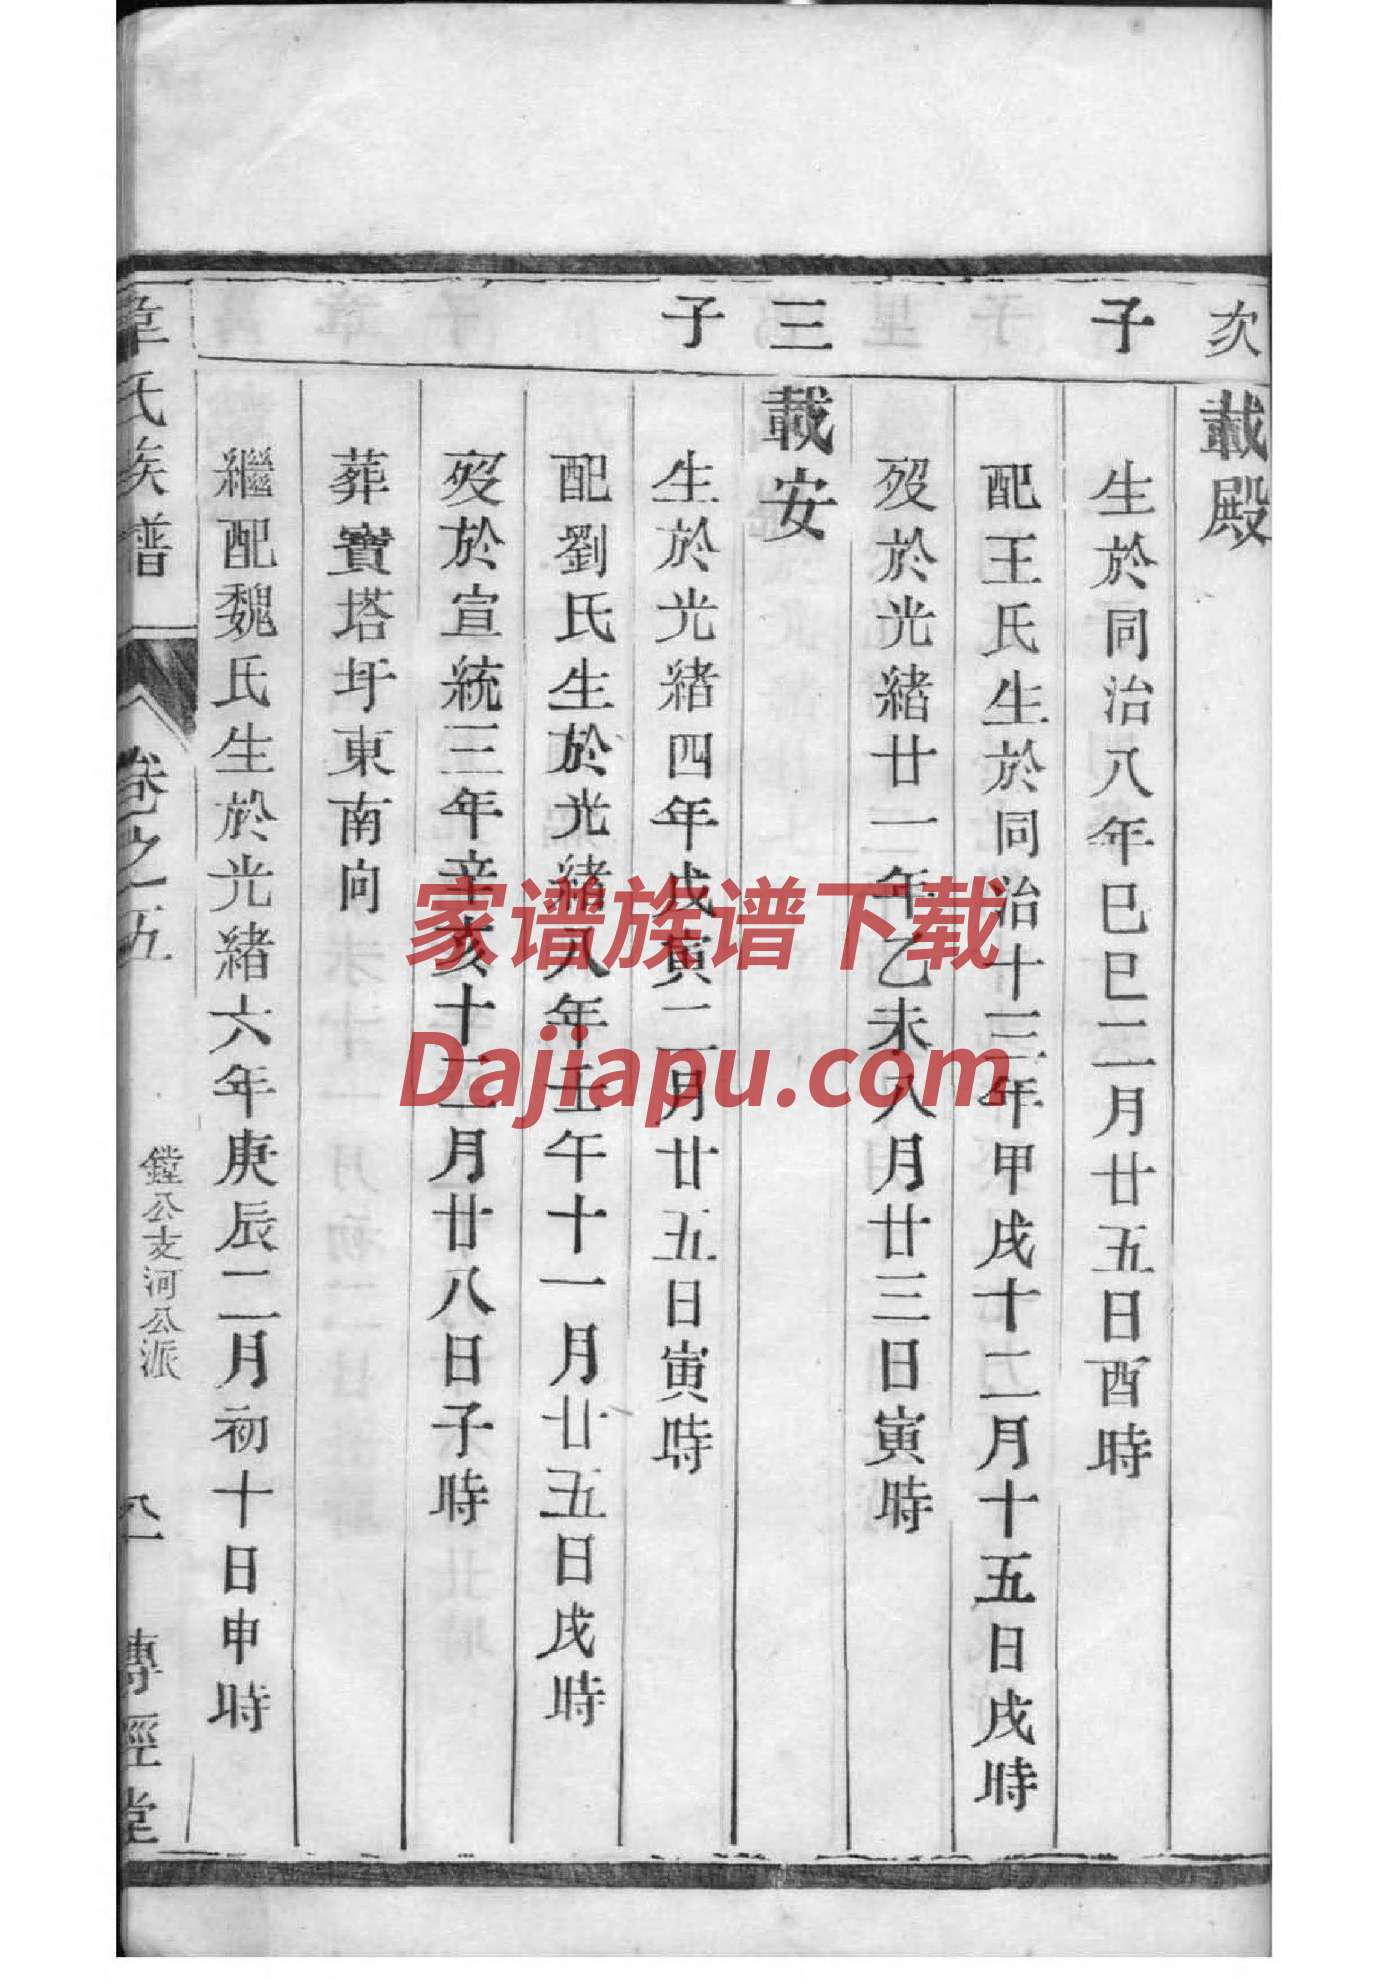 次 載殿
子 生於同治八年己巳二月廿五日酉時
配王氏生於同治十三年甲戌十二月十五日戌時
歿於光緒廿一年乙未八月廿三日寅時
三 載安
子 生於光緒四年戊寅二月廿五日寅時
配劉氏生於光緒八年壬午十一月廿五日戌時
歿於宣統三年辛亥十二月廿八日子時
葬寶塔圩東南向
繼配魏氏生於光緒六年庚辰二月初十日申時
章氏族譜
卷之五
鏜公支河公派
傳經堂
家谱族谱下载
Dajiapu.com